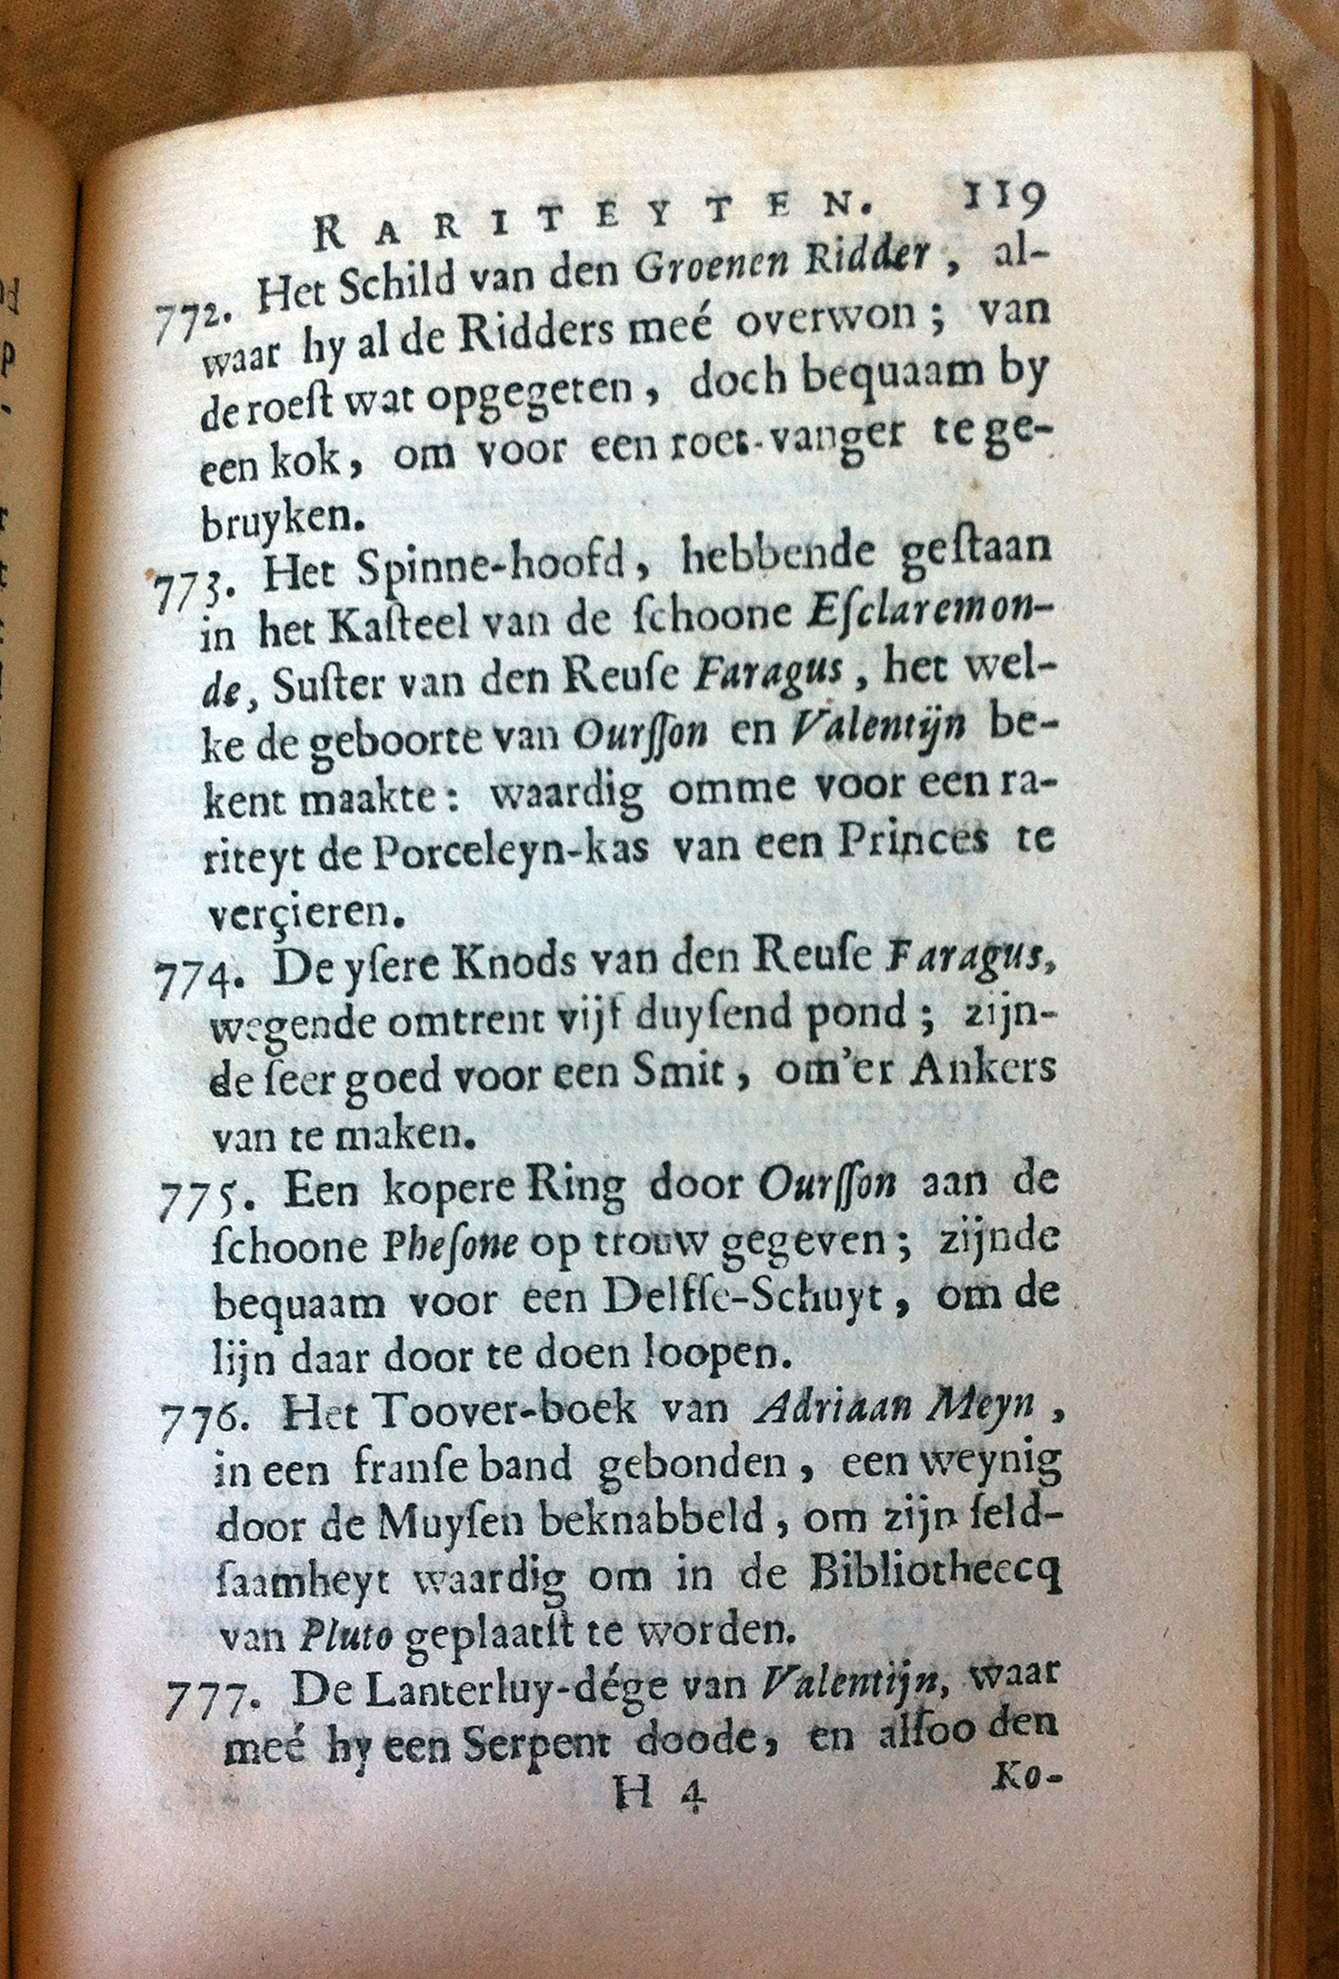 RARITEYTEN. 119
772. Het Schild van den Groenen Ridder, al-
waar hy al de Ridders meé overwon; van
de roeſt wat opgegeten, doch bequaam by
een kok, om voor een roet-vanger te ge-
bruyken.
773. Het Spinne-hoofd, hebbende geſtaan
in het Kaſteel van de ſchoone Eſclaremon-
de, Suſter van den Reuſe Faragus, het wel-
ke de geboorte van Ourſſon en Valentijn be-
kent maakte: waardig omme voor een ra-
riteyt de Porceleyn-kas van een Princes te
verçieren.
774. De yſere Knods van den Reuſe Faragus,
wegende omtrent vijf duyſend pond; zijn-
de ſeer goed voor een Smit, om'er Ankers
van te maken.
775. Een kopere Ring door Ourſſon aan de
ſchoone Pheſone op trouw gegeven; zijnde
bequaam voor een Delfſe-Schuyt, om de
lijn daar door te doen loopen.
776. Het Toover-boek van Adriaan Meyn,
in een franſe band gebonden, een weynig
door de Muyſen beknabbeld, om zijn ſeld-
ſaamheyt waardig om in de Bibliotheecq
van Pluto geplaatſt te worden.
777. De Lanterluy-dége van Valentijn, waar
meé hy een Serpent doode, en alſoo den
H 4 Ko-